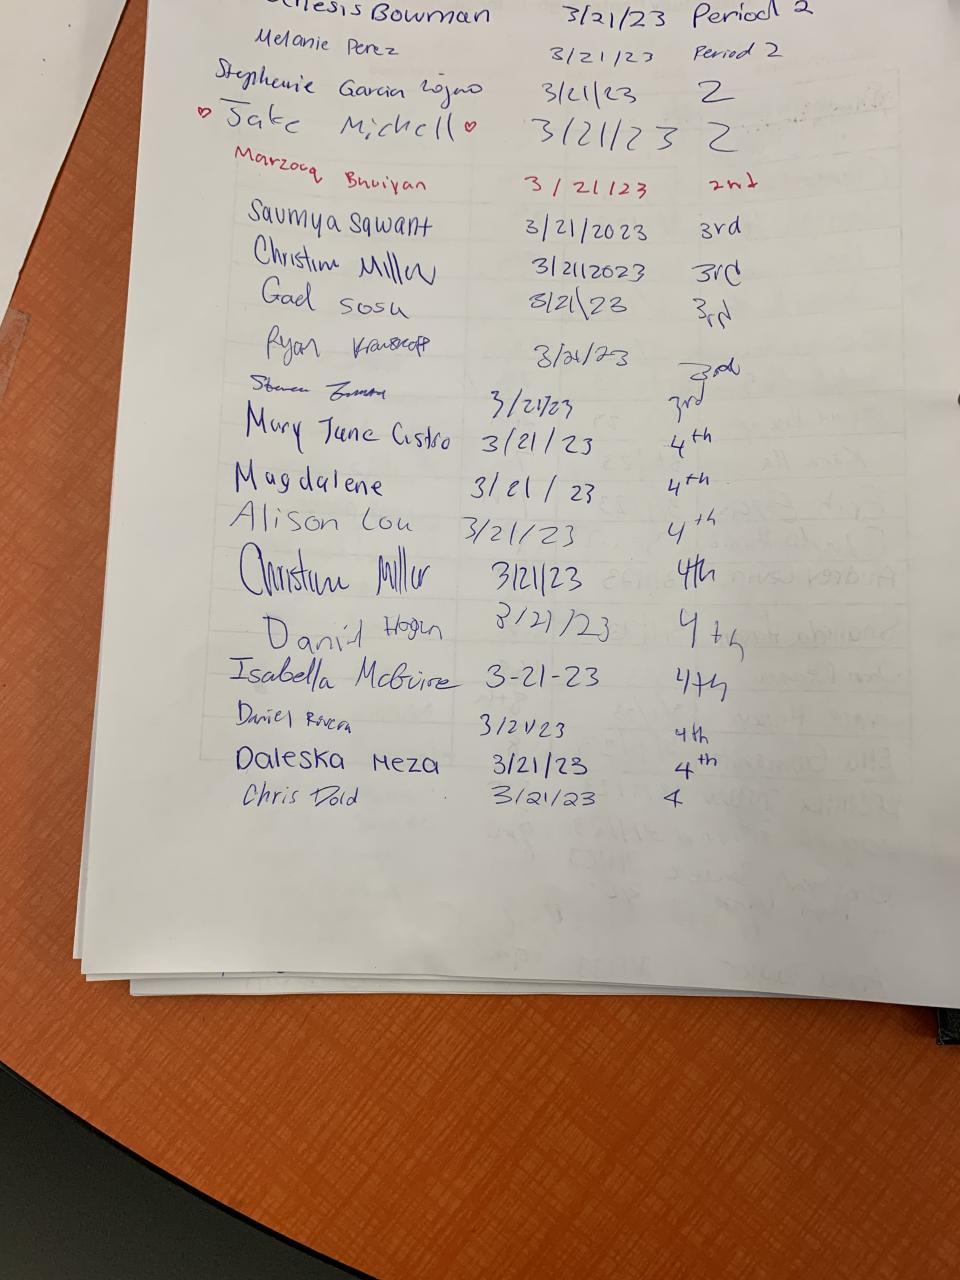 Bowman 3/21/23 Period 2
Melanie Perez 3/21/23 Period 2
Stephenie Garcia 3/21/23 2
Jake Michell 3/21/23 2
Marzooq Bhuiyan 3/21/23 2nd
Saumya Sawant 3/21/2023 3rd
Christine Miller 3/21/2023 3rd
Gael Sosa 3/21/23 3rd
Ryan 3/21/23 3rd
Steven 3/21/23 3rd
Mary June Castro 3/21/23 4th
Magdalene 3/21/23 4th
Alison Lou 3/21/23 4th
Christine Miller 3/21/23 4th
Daniel Hogan 3/21/23 4th
Isabella McGuire 3-21-23 4th
Daniel Rivera 3/21/23 4th
Daleska Meza 3/21/23 4th
Chris Dold 3/21/23 4